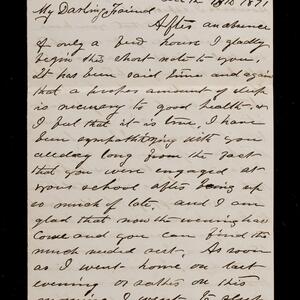 1871
My Darling Friend
After an absence
of only a few hours I gladly
begin this short note to you.
It has been said time and again
that a proper amount of sleep
is necessary to good health, &
I feel that it is true. I have
been sympathizing with you
all day long from the fact
that you were engaged at
your school after being up
so much of late, and I am
glad that now the evening has
come and you can find the
much needed rest. As soon
as I went home on last
evening or rather on this
morning I went to